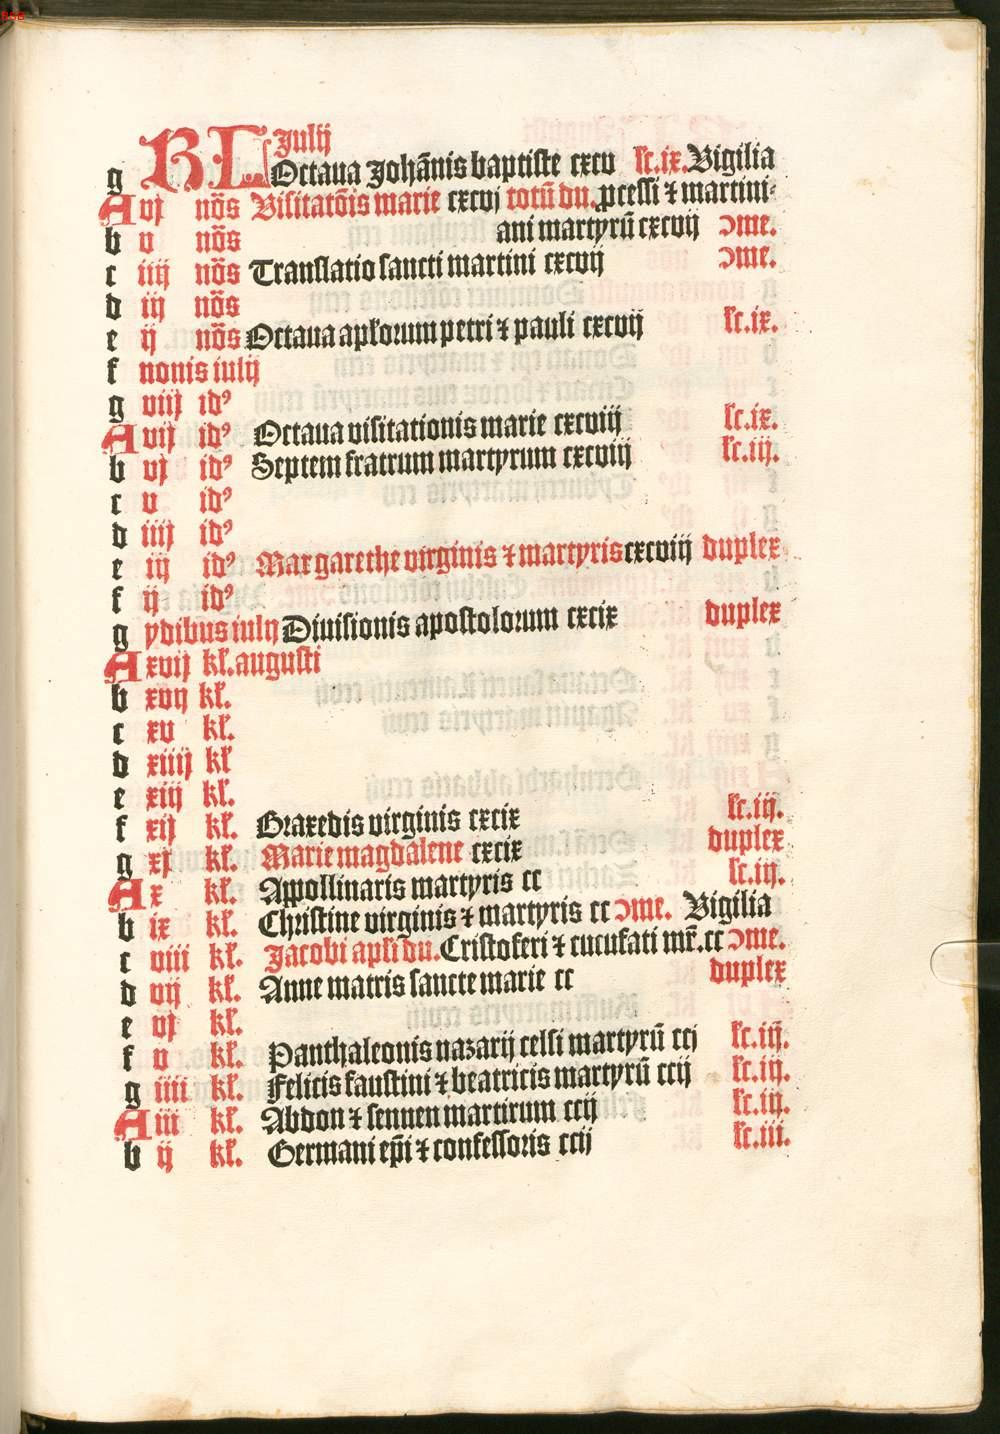 g KL Julij
Octaua Johānis baptiste cxcv ſc.ix. Vigilia
A vj nōs Viſitatōis marie cxcvj totū du. ꝓceſſi ⁊ martini-
b v nōs ani martyrū cxcvij ↄme.
c iiij nōs Tranſlatio ſancti martini cxcvij ↄme.
d iij nōs
e ij nōs Octaua apłorum petri ⁊ pauli cxcvij ſc.ix.
f nonis iulij
g viij idꝰ
A vij idꝰ Octaua viſitationis marie cxcviij ſc.ix.
b vj idꝰ Septem fratrum martyrum cxcviij ſc.iij.
c v idꝰ
d iiij idꝰ
e iij idꝰ Margarethe virginis ⁊ martyris cxcviij duplex
f ij idꝰ
g ydibus iulij Diuiſionis apoſtolorum cxcix duplex
A xvij kł. auguſti
b xvij kł.
c xv kł.
d xiiij kł
e xiij kł.
f xij kł. Braxedis virginis cxcix ſc.iij.
g xj kł. Marie magdalene cxcix duplex
A x kł. Appollinaris martyris cc ſc.iij.
b ix kł. Chriſtine virginis ⁊ martyris cc ↄme. Vigilia
c viii kł. Jacobi apłi du. Criſtoferi ⁊ cucufati mr̄. cc ↄme.
d vij kł. Anne matris ſancte marie cc duplex
e vj kł.
f v kł. Panthaleonis nazarij celſi martyrū ccj ſc.iij.
g iiii kł. Felicis fauſtini ⁊ beatricis martyrū ccij ſc.iij.
A iii kł. Abdon ⁊ ſennen martirum ccij ſc.iij.
b ij kł. Germani ep̄i ⁊ confeſſoris ccij ſc.iii.